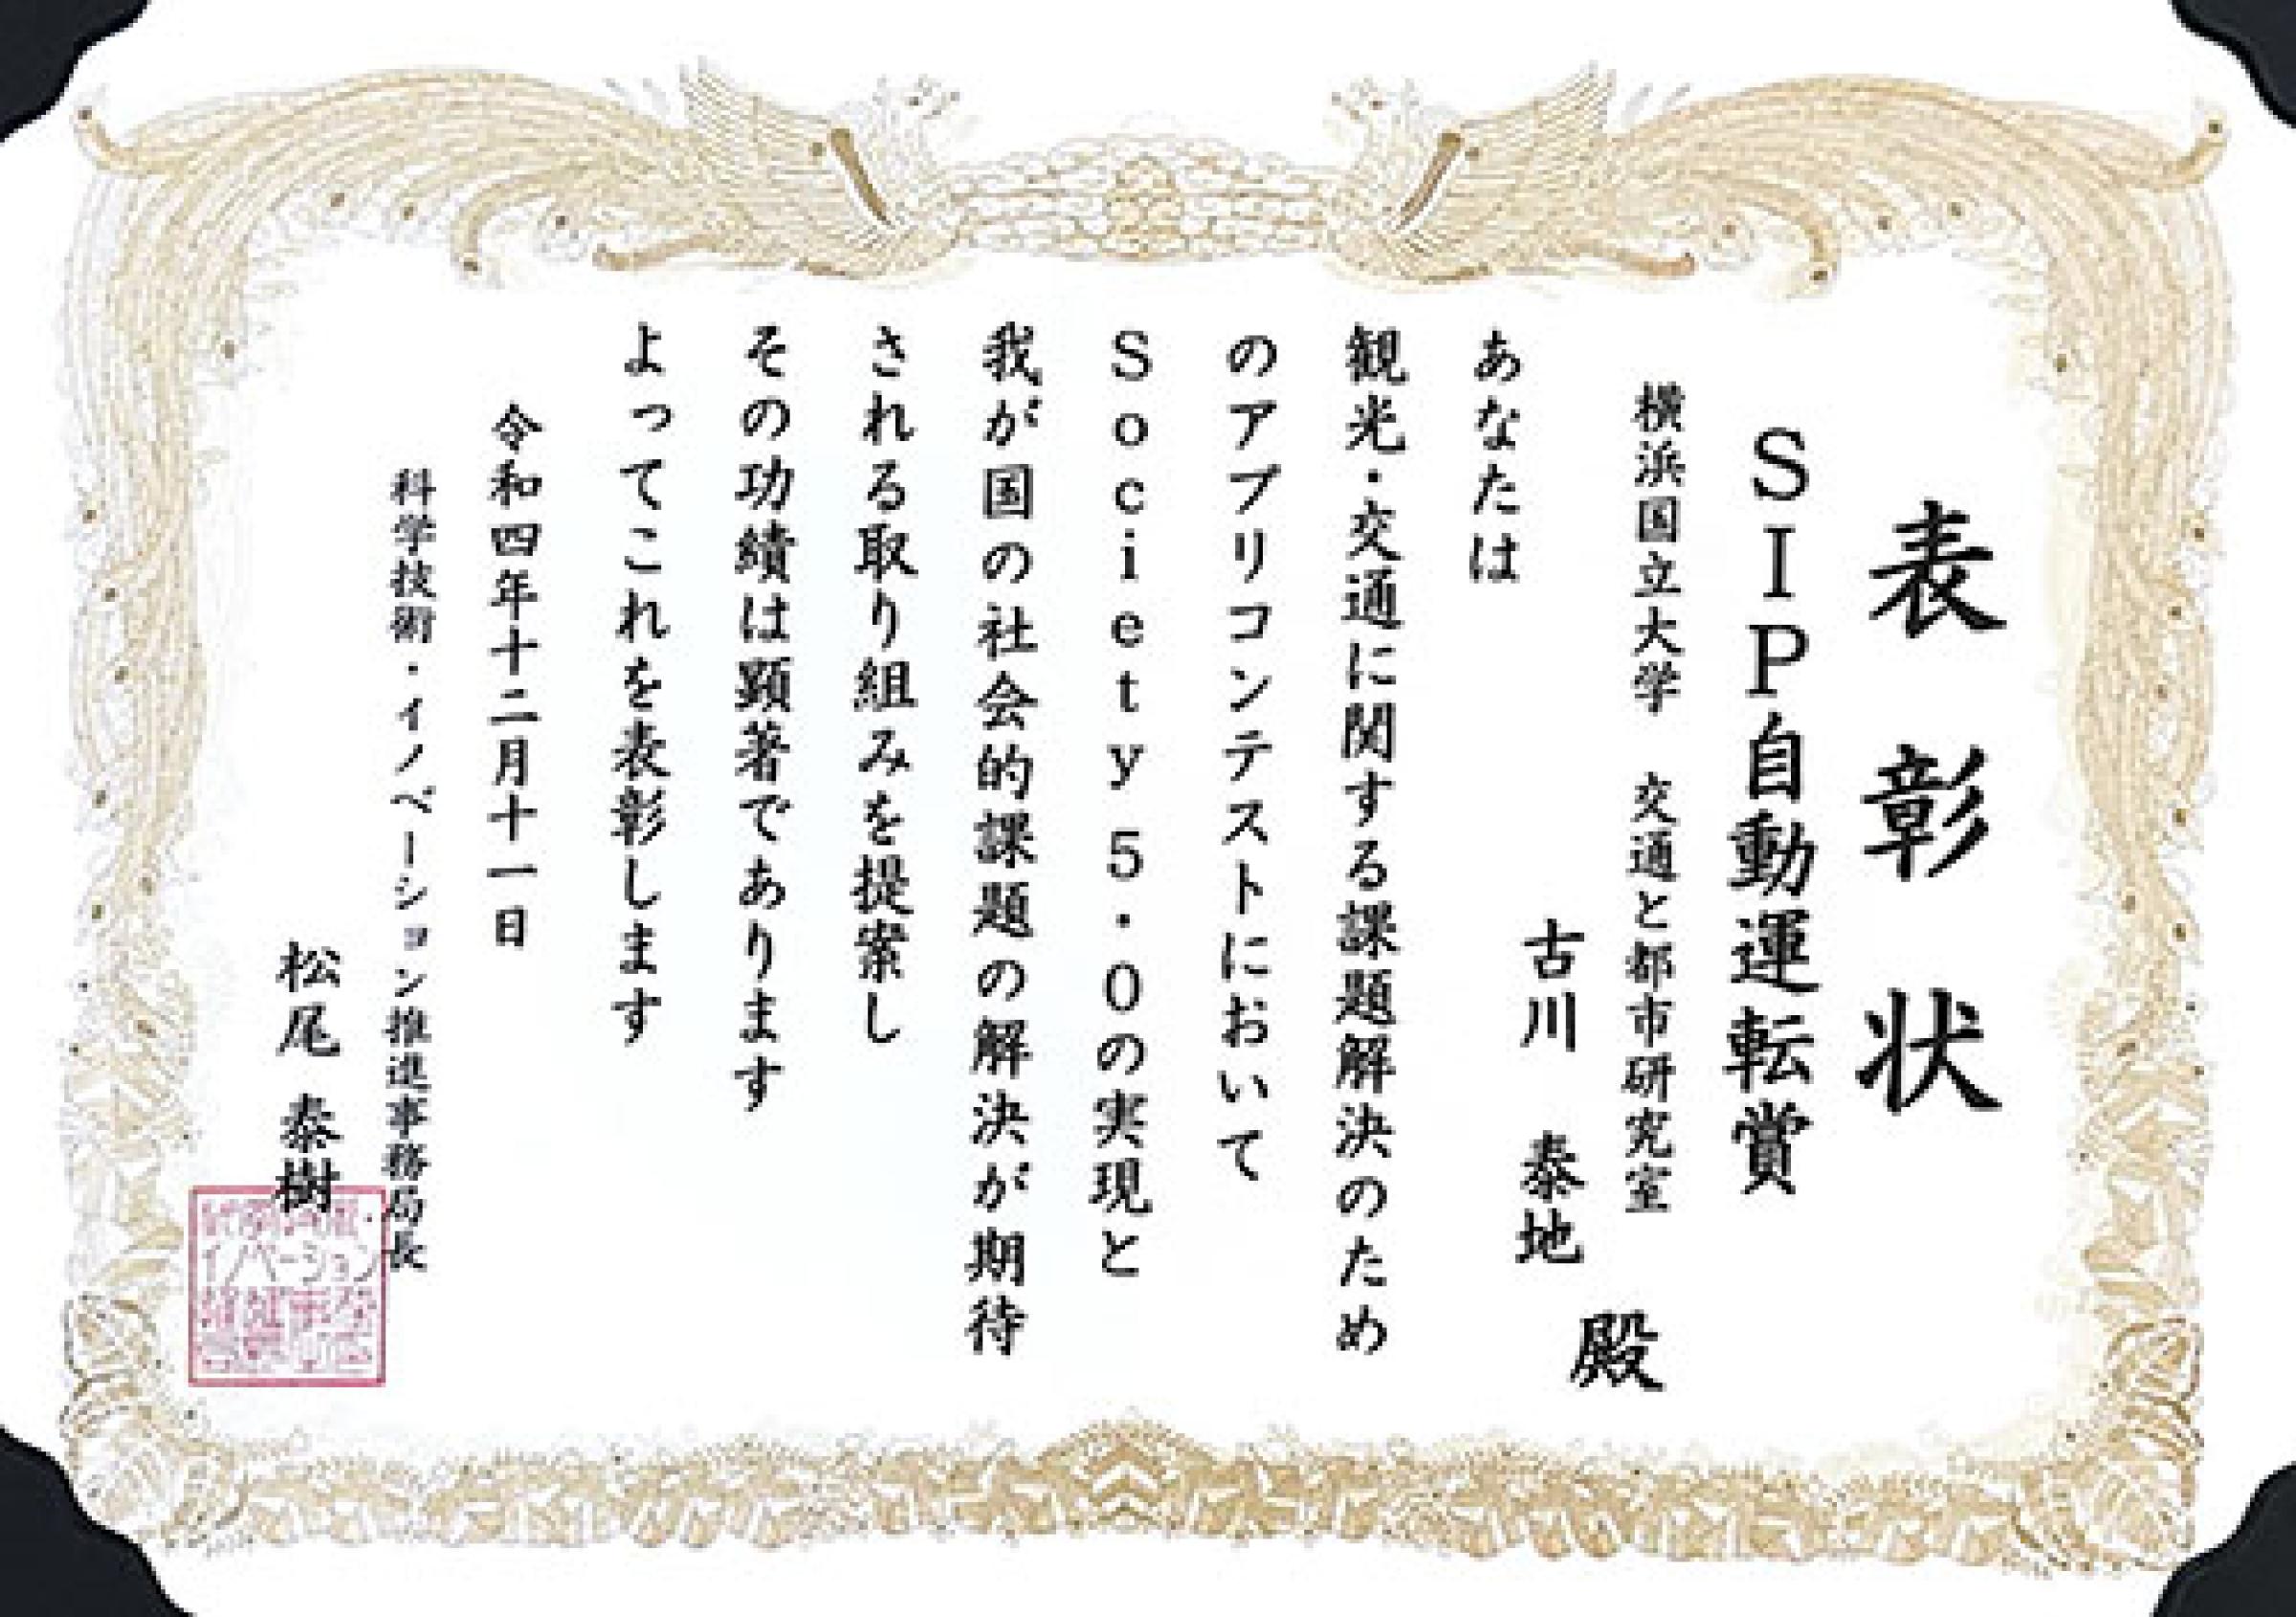 表彰状
SIP自動運転賞
横浜国立大学 交通と都市研究室
古川 泰地
殿
あなたは
観光・交通に関する課題解決のため
のアプリコンテストにおいて
Society5.0の実現と
我が国の社会的課題の解決が期待
される取り組みを提案し
その功績は顕著であります
よってこれを表彰します
令和四年十二月十一日
科学技術・イノベーション推進事務局長
松尾 泰樹
イノベーション